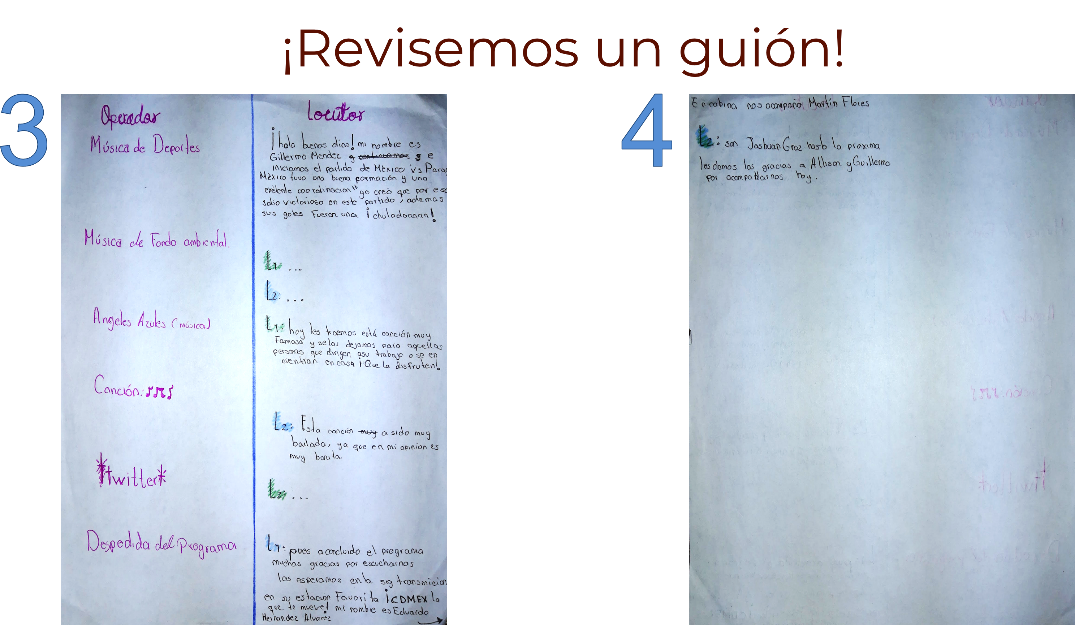 ¡Revisemos un guión!
3
Operador
Locutor
Música de Deportes
¡hola benos dias! mi nombre es
Guillermo Mendez y e
iniciamos el partido de México vs Para
México tuvo una buena formación y una
coordinación" yo creo que por eso
salio victorioso en este partido, ademas
sus goles Fueron una ¡chuladaaaan!
Música de Fondo ambiental
L1: ...
L2: ...
Angeles Azules (música)
L1: hoy les tenemos está canción muy
Famosa y se las dejamos para aquellas
personas que dirigen a su trabajo o se en
mentran en casa ¡Que la disfruten!
Canción:
L2: Esta canción muy a sido muy
bailada, ya que en mi opinion es
muy bonita.
*twitter*
...
Despedida del Programa
L1: pues a concluido el programa
muchas gracias por escucharnos
los esperamos en la sig transmición
en su estacion Favorita ¡CDMEX la
que te mueve! mi nombre es Eduardo
Hernandez Alvarez
4
En cabina nos acompaño, Martín Flores
L2: son Joshuan Cruz hasta la proxima
les damos las gracias a Alison y Guillermo
por acompañarnos hoy.